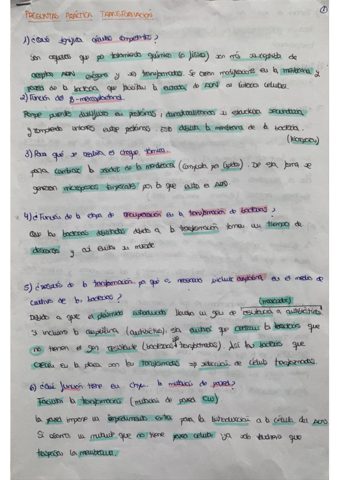 PREGUNTAS PRÁCTICA TRANSFORMACIÓN
1) ¿Qué significa células competentes?
Son aquellas que por tratamiento químico (o físico) son más susceptible de
aceptar ADN exógeno y ser transformadas. Se crean modificaciones en la membrana y
pared de la bacteria, que facilitan la entrada de ADN al interior celular.
2) Función del β-mercaptoetanol.
Rompe puentes disulfuro en proteínas, desnaturalizamos su estructura secundaria
y rompiendo uniones entre proteínas. Esto afecta la membrana de la bacteria.
3) Para qué se realiza el choque térmico.
para cambiar la fluidez de la membrana (compuesta por lípidos). De esta forma se
generan microporos temporales por lo que entra el ADN
4) ¿Función de la etapa de recuperación en la transformación de bacterias?
Que las bacterias debilitadas debido a la transformación tomen un tiempo de
descanso y así evitar su muerte
5) ¿Después de la transformación por qué es necesario incluir ampicilina en el medio de
cultivo de las bacterias?
(marcador)
Debido a que el plásmido introducido llevaba un gen de resistencia a antibióticos
si incluimos la ampicilina (antibiótico), se evitará que crezcan las bacterias que
no tienen el gen resistente (bacterias no transformadas). Así las bacterias que
crecen en la placa son las transformadas → selección de células transformadas.
6) ¿Qué función tiene en Chry. la mutación de pared?
Facilitar la transformación (mutación de pared CW)
La pared impone un impedimento extra para la introducción a la célula del ADN
Si usamos un mutante que no tiene pared celular ya solo tendría que
traspasar la membrana.